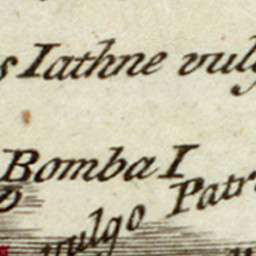 s Iathne vulg
Bomba I
vulgo Patr